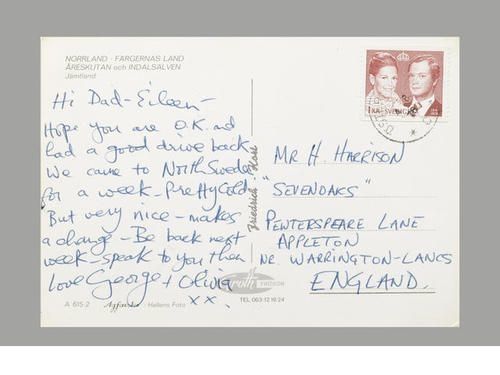 NORRLAND - FÄRGERNAS LAND
ÅRESKUTAN och INDALSÄLVEN
Jämtland
Hi Dad-Eileen-
Hope you are O.K. and
had a good drive back.
We came to North Sweden
for a week - Pretty Cold-
But very nice - makes
a change - Be back next
week - speak to you then
love George + Olivia
x x .
A 615-2
Hellens Foto
Friedrich
FRÖSÖN
TEL 063-12 16 24
SVERIGE
MR H. HARRISON
"SEVENOAKS"
PEWTERSPEARE LANE
APPLETON
NR. WARRINGTON-LANCS
ENGLAND.